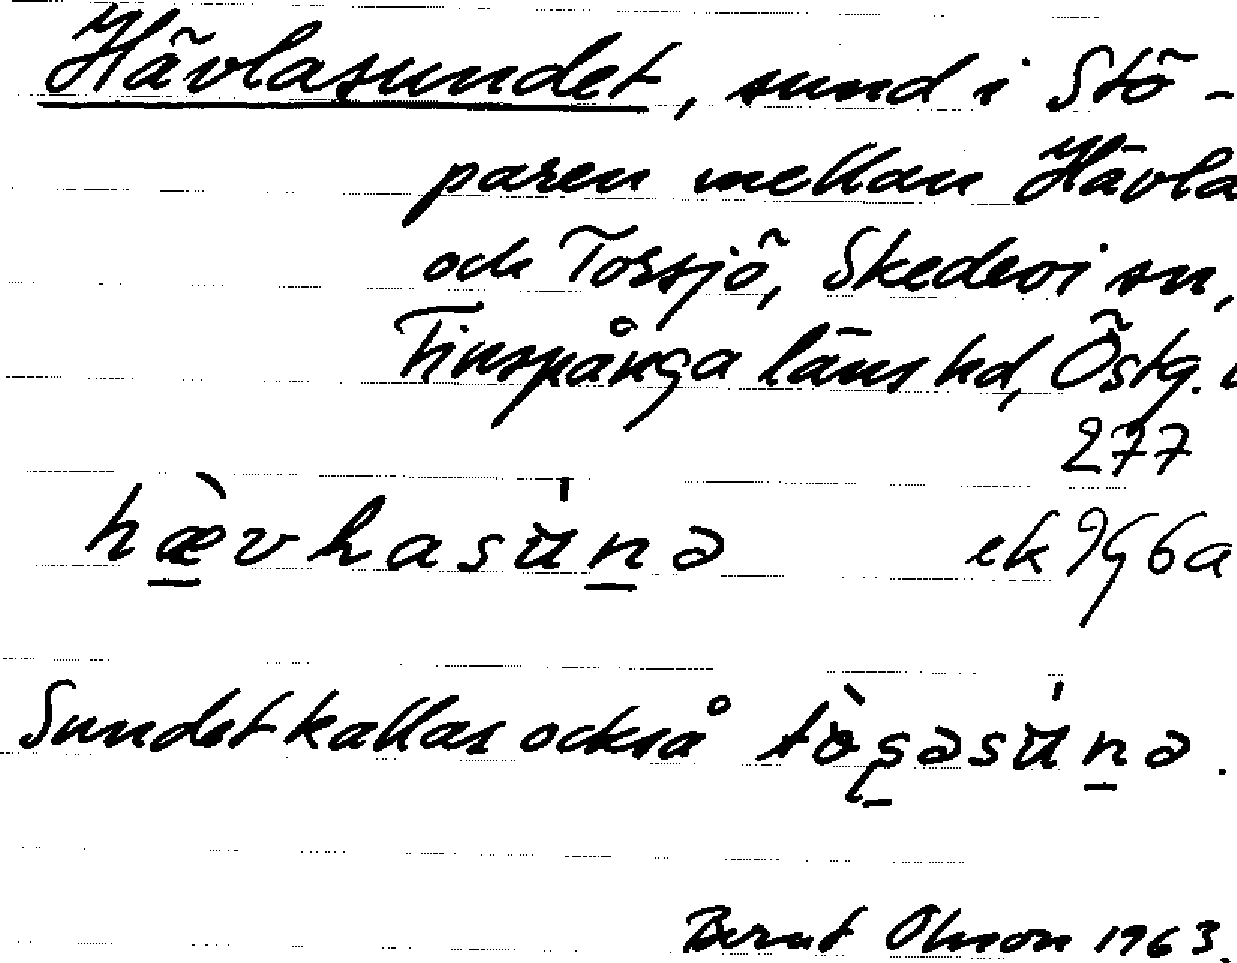 Hävlasundet, sund i Stö-
paren mellan Hävla
och Torsjö, Skedevi sn,
Finspånga läns hd, Östg. l
277
hæ̀vhasu̇́nə ek 9G6a
Sundet kallas också
Bernt Olsson 1963.